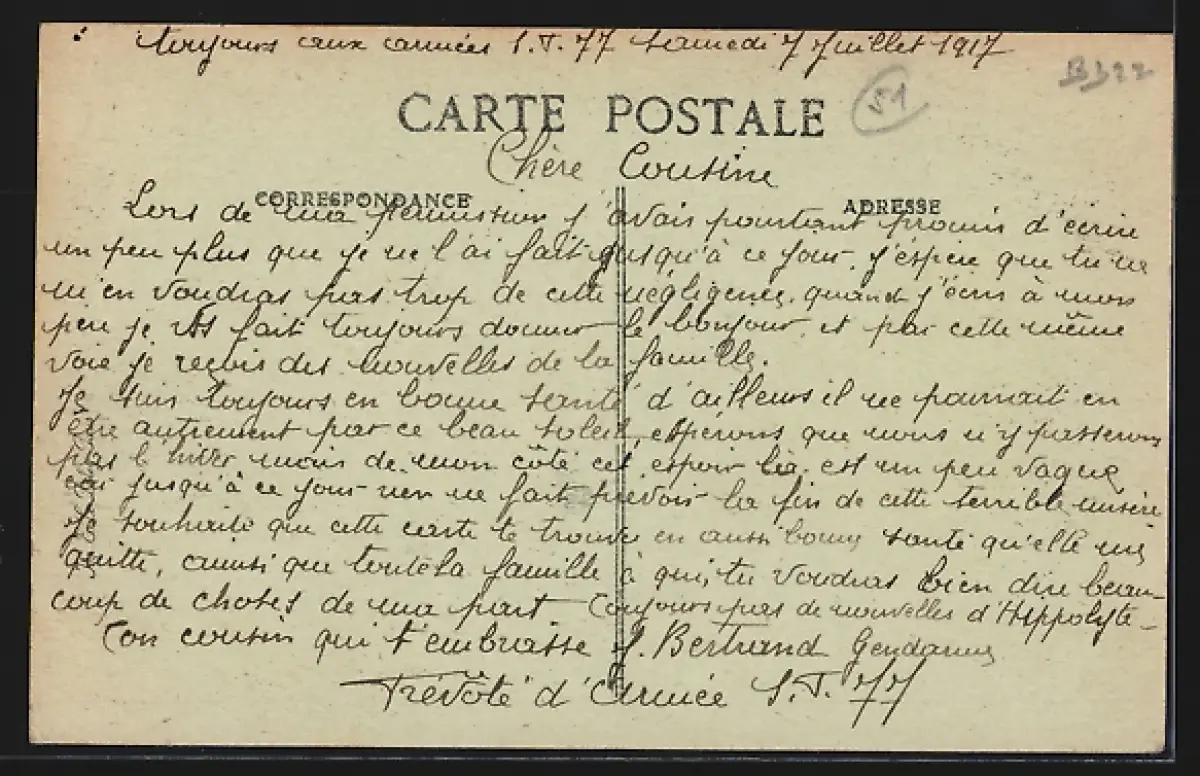 toujours aux armées S.T. 77 Samedi 7 Juillet 1917
B322
51
CARTE POSTALE
Chère Cousine
CORRESPONDANCE
ADRESSE
Lors de ma permission j'avais pourtant promis d'écrire
un peu plus que je ne l'ai fait jusqu'à ce jour. j'espère que tu ne
m'en voudras pas trop de cette négligence. quand j'écris à mon
père je fait toujours donner le bonjour et par cette même
voie je reçois des nouvelles de la famille.
Je suis toujours en bonne santé d'ailleurs il ne pourrait en
être autrement par ce beau soleil, espérons que nous n'y passerons
pas l'hiver mais de mon côté cet espoir là est un peu vague
car jusqu'à ce jour rien ne fait prévoir la fin de cette terrible misère
Je souhaite que cette carte te trouve en aussi bonne santé qu'elle me
quitte, ainsi que toute la famille à qui tu voudras bien dire beau-
coup de choses de ma part Toujours pas de nouvelles d'Hippolyte-
Ton cousin qui t'embrasse J. Bertrand Gendarme
Prévôté d'Armée S.T. 77